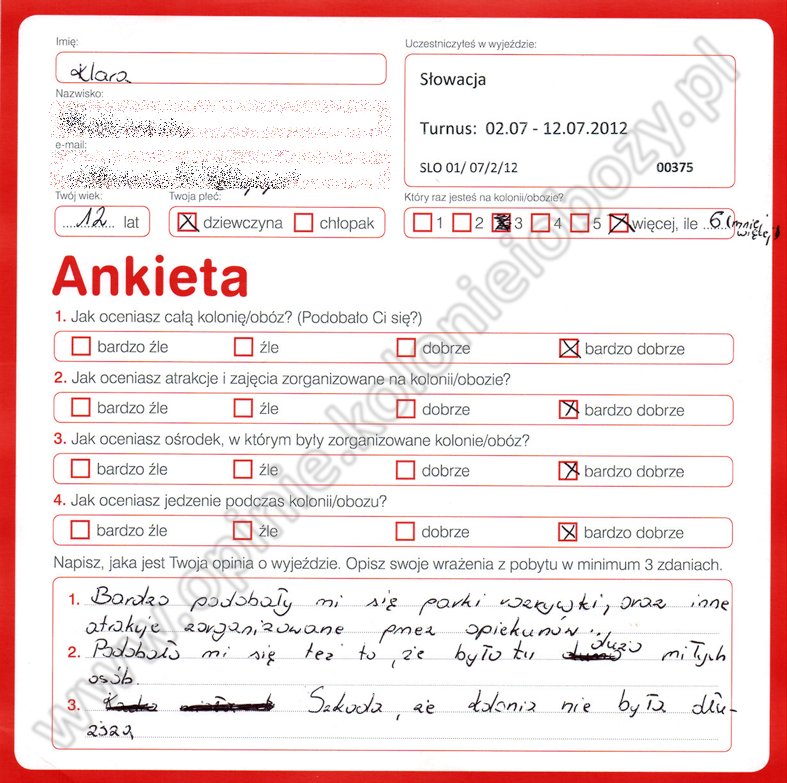 Imię:
Klara
Nazwisko:
e-mail:
Uczestniczyłeś w wyjeździe:
Słowacja
Turnus: 02.07 - 12.07.2012
SLO 01/ 07/2/12 00375
Twój wiek:
12 lat
Twoja płeć:
dziewczyna chłopak
Który raz jesteś na kolonii/obozie?
1 2 3 4 5 więcej, ile 6 (mniej więcej)
Ankieta
1. Jak oceniasz całą kolonię/obóz? (Podobało Ci się?)
bardzo źle źle dobrze bardzo dobrze
2. Jak oceniasz atrakcje i zajęcia zorganizowane na kolonii/obozie?
bardzo źle źle dobrze bardzo dobrze
3. Jak oceniasz ośrodek, w którym były zorganizowane kolonie/obóz?
bardzo źle źle dobrze bardzo dobrze
4. Jak oceniasz jedzenie podczas kolonii/obozu?
bardzo źle źle dobrze bardzo dobrze
Napisz, jaka jest Twoja opinia o wyjeździe. Opisz swoje wrażenia z pobytu w minimum 3 zdaniach.
1. Bardzo podobały mi się parki rozrywki, oraz inne
atrakcje zorganizowane przez opiekunów.
2. Podobało mi się też to, że było tu dużo miłych
osób.
3. Szkoda, że kolonia nie była dłu-
ższa.
www.opinie.kolonieiobozy.pl